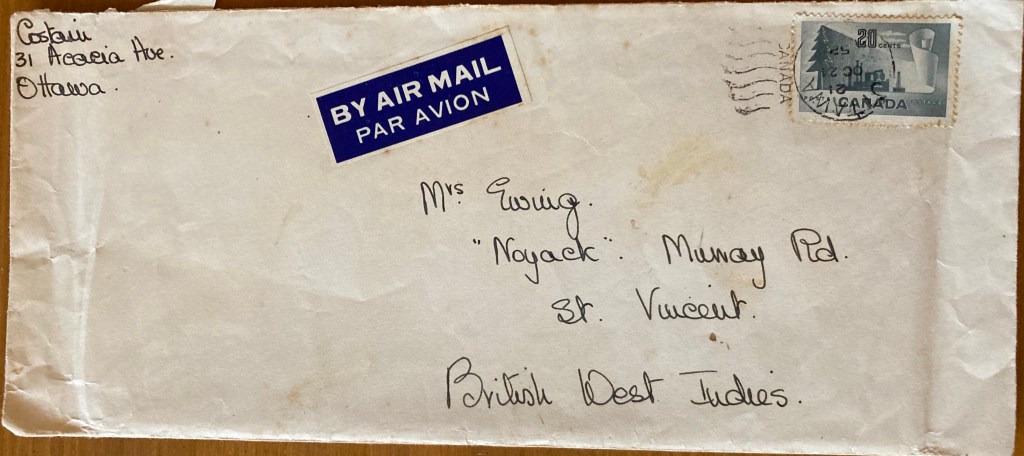 Costain
31 Acacia Ave.
Ottawa.
BY AIR MAIL
PAR AVION
CANADA
20 CENTS
CANADA
Mrs. Ewing.
"Noyack". Murray Rd.
St. Vincent.
British West Indies.